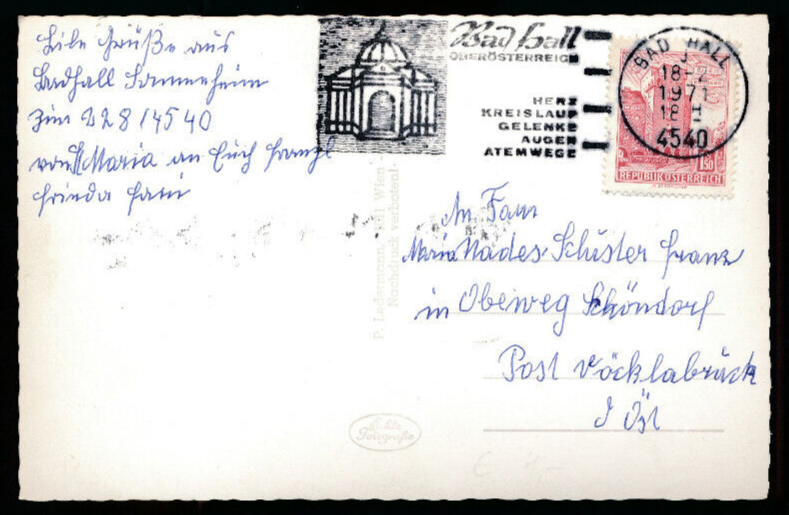 Liebe Grüße aus
Badhall Sonnenheim
Zim 228 / 4540
von Maria an Euch Franzl
Frieda
Bad Hall
OBERÖSTERREICH
HERZ
KREISLAUF
GELENKE
AUGEN
ATEMWEGE
BAD HALL
1971
4540
1.50
REPUBLIK ÖSTERREICH
P. Ledermann, Wien
Nachdruck verboten!
An Fam
Maria Nades-Schuster Franz
in Oberweg Schöndorf
Post Vöcklabruck
Öst
Echte
Fotografie
€